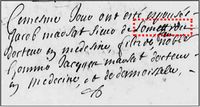 Ce mesme Jour ont esté espousés
Jacob mauslat Sieur de
docteur en medesine, filz de noble
homme Jacques mauslat docteur
en medecine, et de damoiselle